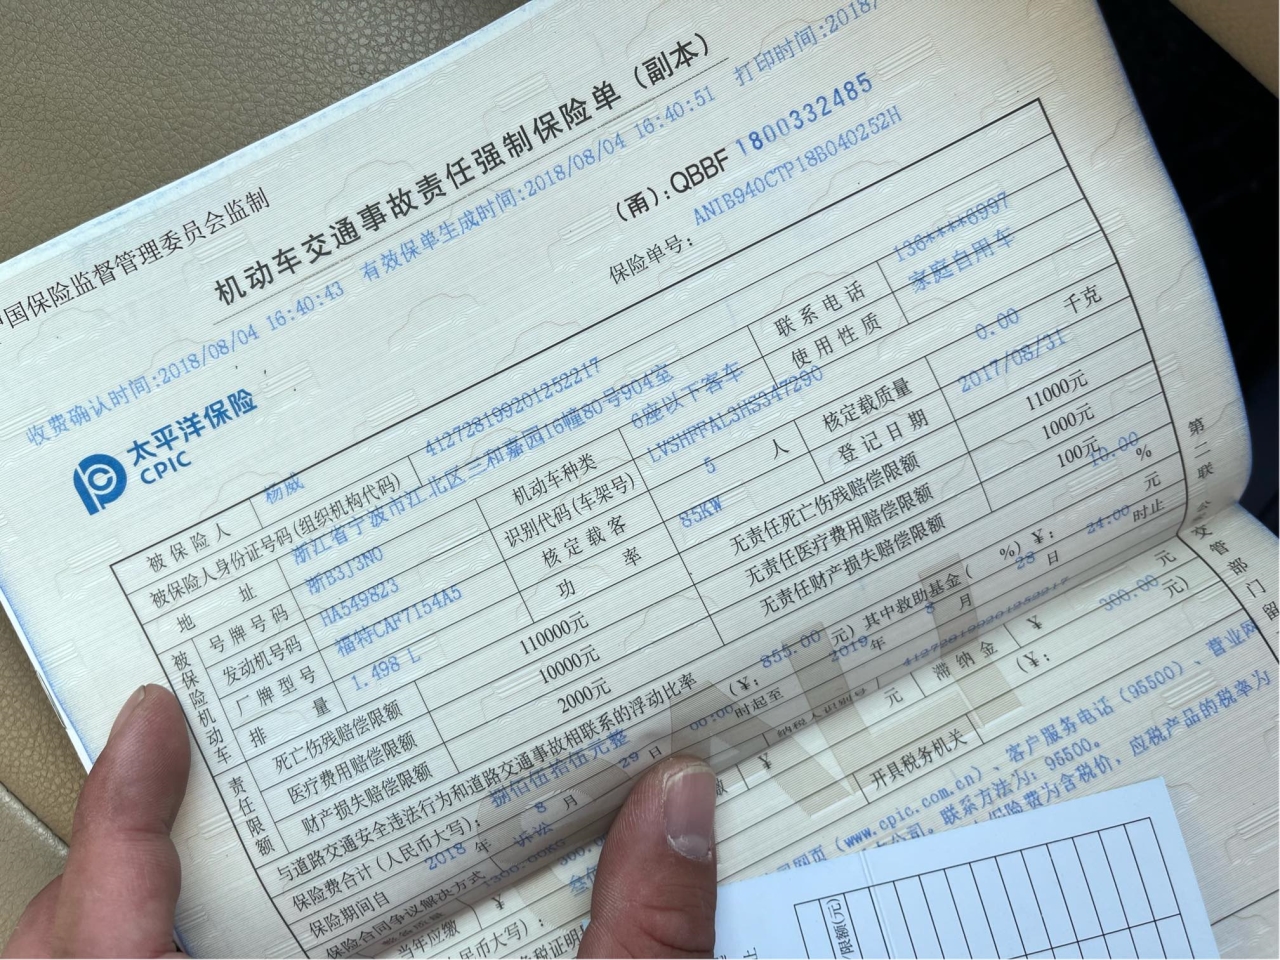 中国保险监督管理委员会监制
机动车交通事故责任强制保险单（副本）
收费确认时间:2018/08/04 16:40:43 有效保单生成时间:2018/08/04 16:40:51 打印时间:2018/
(甬):QBBF 1800332485
太平洋保险
CPIC
保险单号: ANIB940CTP18B040252H
被保险人 杨威
被保险人身份证号码(组织机构代码) 412728199201252217
地址 浙江省宁波市江北区三和嘉园16幢80号904室 联系电话 136****6997
被保险机动车
号牌号码 浙B3J3N0 机动车种类 6座以下客车 使用性质 家庭自用车
发动机号码 HA549823 识别代码(车架号) LVSHFFAL3HS347290
厂牌型号 福特CAF7154A5 核定载客 5 人 核定载质量 0.00 千克
排量 1.498 L 功率 85KW 登记日期 2017/08/31
责任限额
死亡伤残赔偿限额 110000元 无责任死亡伤残赔偿限额 11000元
医疗费用赔偿限额 10000元 无责任医疗费用赔偿限额 1000元
财产损失赔偿限额 2000元 无责任财产损失赔偿限额 100元
与道路交通安全违法行为和道路交通事故相联系的浮动比率 10.00 %
保险费合计(人民币大写): 捌佰伍拾伍元整 (¥: 855.00 元) 其中救助基金( %) ¥: 元
保险期间自 2018 年 8 月 29 日 00:00 时起至 2019 年 8 月 28 日 24:00 时止
保险合同争议解决方式 诉讼
当年应缴 ¥ 300.00 元 ¥ 元 滞纳金 ¥ 元
民币大写): (¥: 300.00 元)
开具税务机关
司网页(www.cpic.com.cn)、客户服务电话(95500)、营业网
公司。联系方法为: 95500。
保险费为含税价, 应税产品的税率为
第二联 交管部门留
限额(元)